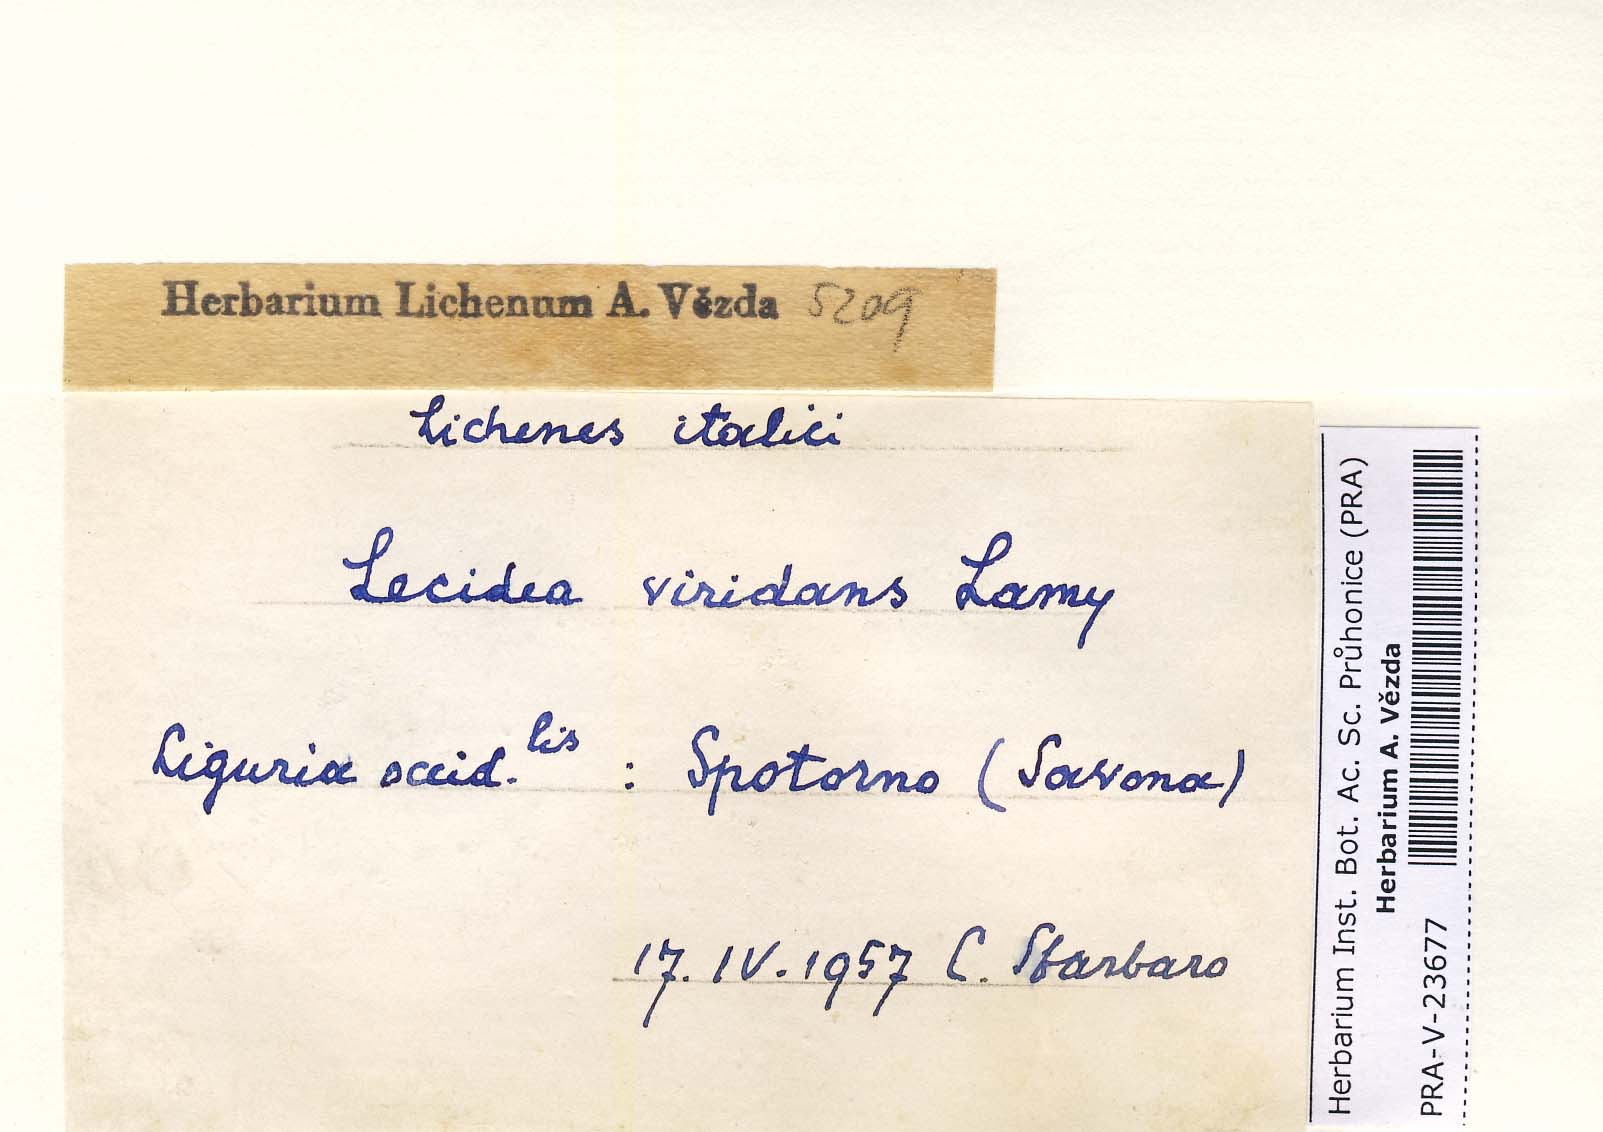 Herbarium Lichenum A. Vězda 5209
Lichenes italici
Lecidea viridans Lamy
Liguria occid.lis : Spotorno (Savona)
17. IV. 1957 C. Sbarbaro
Herbarium Inst. Bot. Ac. Sc. Průhonice (PRA)
Herbarium A. Vězda
PRA-V-23677